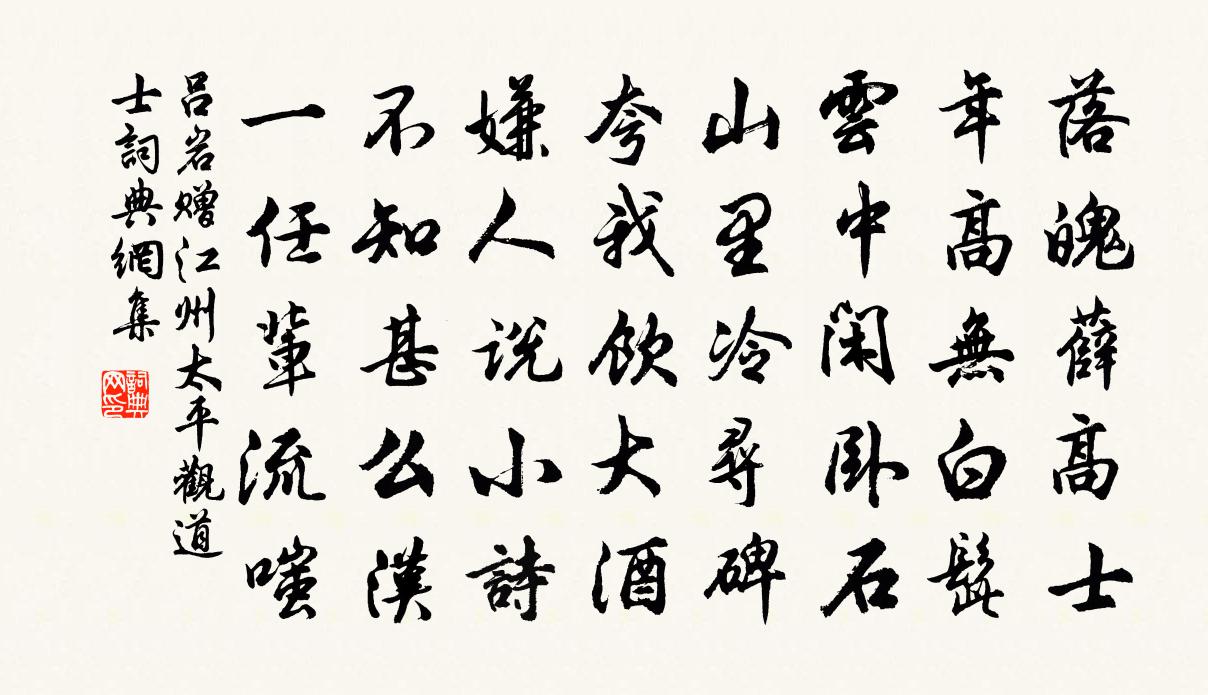 落魄薛高士
年高無白髭
雲中閑卧石
山里冷尋碑
夸我飲大酒
嫌人説小詩
不知甚么漢
一任輩流嗤
吕岩赠江州太平觀道
士詞典網集
詞典网印